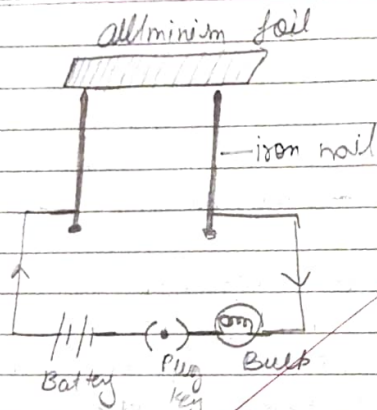 alluminium foil
iron nail
Battey
Plug
key
Bulb